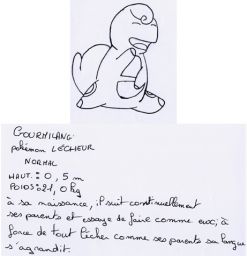 GOURMILANG
pokémon LÉCHEUR
NORMAL
HAUT. : 0,5 m
POIDS : 21,0 kg
à sa naissance, il suit continuellement
ses parents et essaye de faire comme eux, à
force de tout lécher comme ses parents sa langue
s'agrandit.